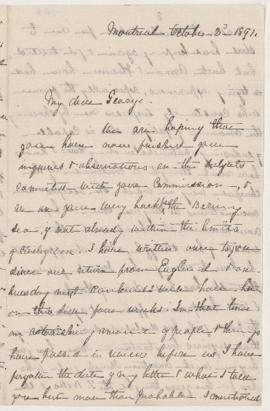 Montreal October 2d 1891.
My dear George.
We are hoping that
you have now finished your
inquiries & observations on the subjects
connected with your Commission
on your way back the Behring
sea, if not already within the limits
of civilization. I have written once to you
since our return from England & on
tuesday next we shall have been home
four weeks. In that time
an astonishing amount of people & things
have passed in review before us. I have
forgotten the date of my letter & what I told
you but more than probable I mentioned